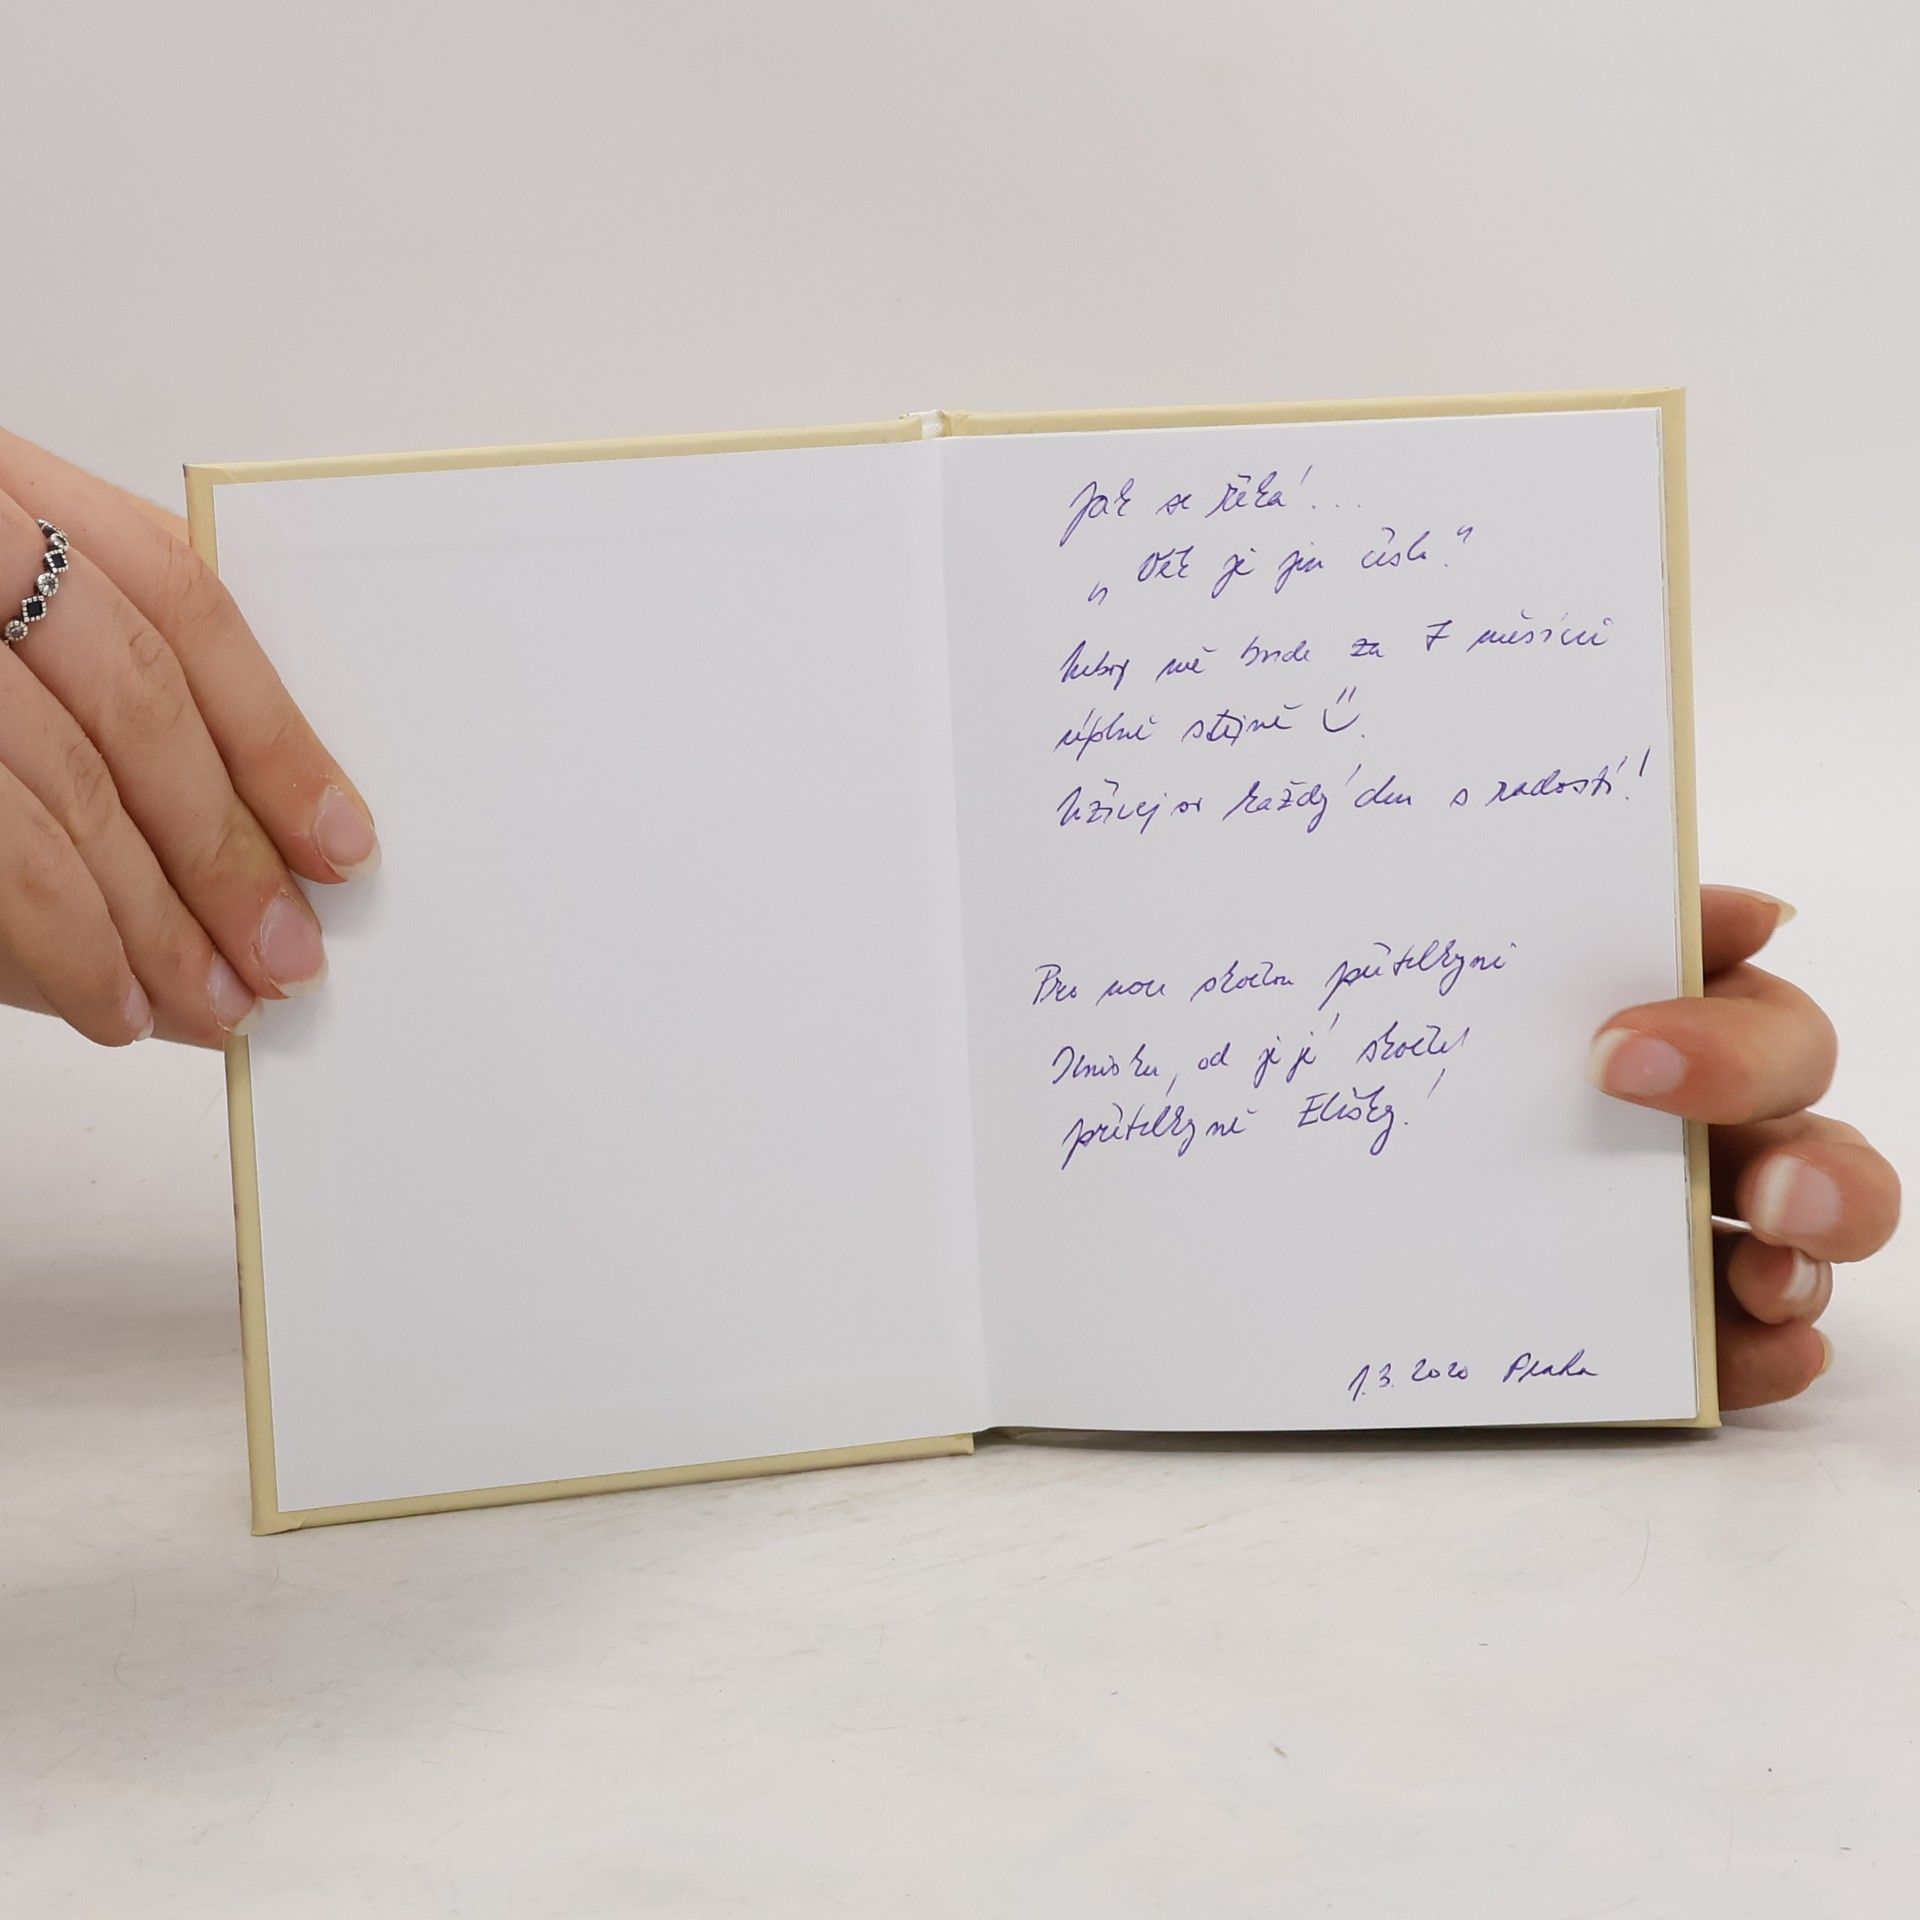 Jak se říká...
„Věk je jen číslo."
neboj mě bude za 7 měsíců
úplně stejně
Užívej si každý den s radostí!
Pro mou skvělou přítelkyni
od její skvělé
přítelkyně Elišky!
1.3.2020 Praha